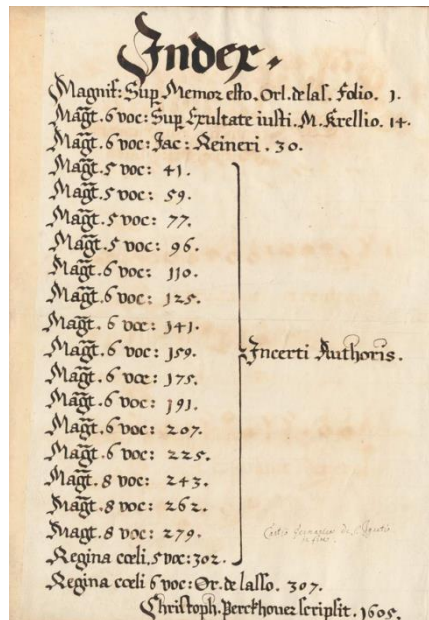 Index.
Magnif: Sup Memor esto. Orl. de las. Folio. 1.
Magt. 6 voc: Sup Exultate iusti. M. Krellio. 14.
Magt. 6 voc: Jac: Reineri. 30.
Magt. 5 voc: 41.
Magt. 5 voc: 59.
Magt. 5 voc: 77.
Magt. 5 voc: 96.
Magt. 6 voc: 110.
Magt. 6 voc: 125.
Magt. 6 voce: 141.
Magt. 6 voc: 159. Incerti Authoris.
Magt. 6 voce: 175.
Magt. 6 voc: 191.
Magt. 6 voc: 207.
Magt. 6 voc: 225.
Magt. 8 voc: 243.
Magt. 8 voc: 262.
Magt. 8 voc: 279.
Regina cœli. 5 voc: 302.
Regina cœli 6 voc: Or. de lasso. 307.
Christoph. Perckhover scripsit. 1605.